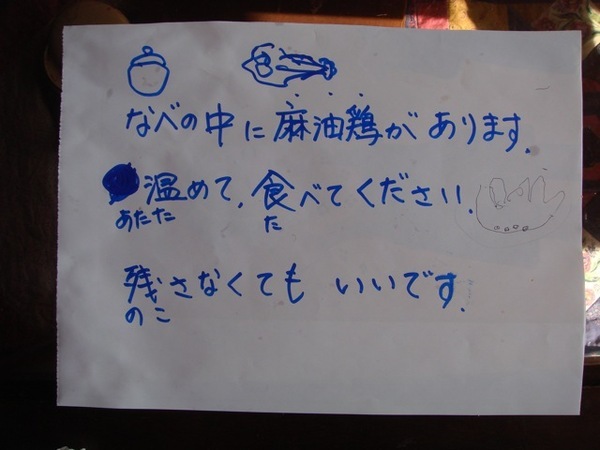 なべの中に麻油鶏があります.
温めて,食べてください.
あたた た
残さなくてもいいです.
のこ